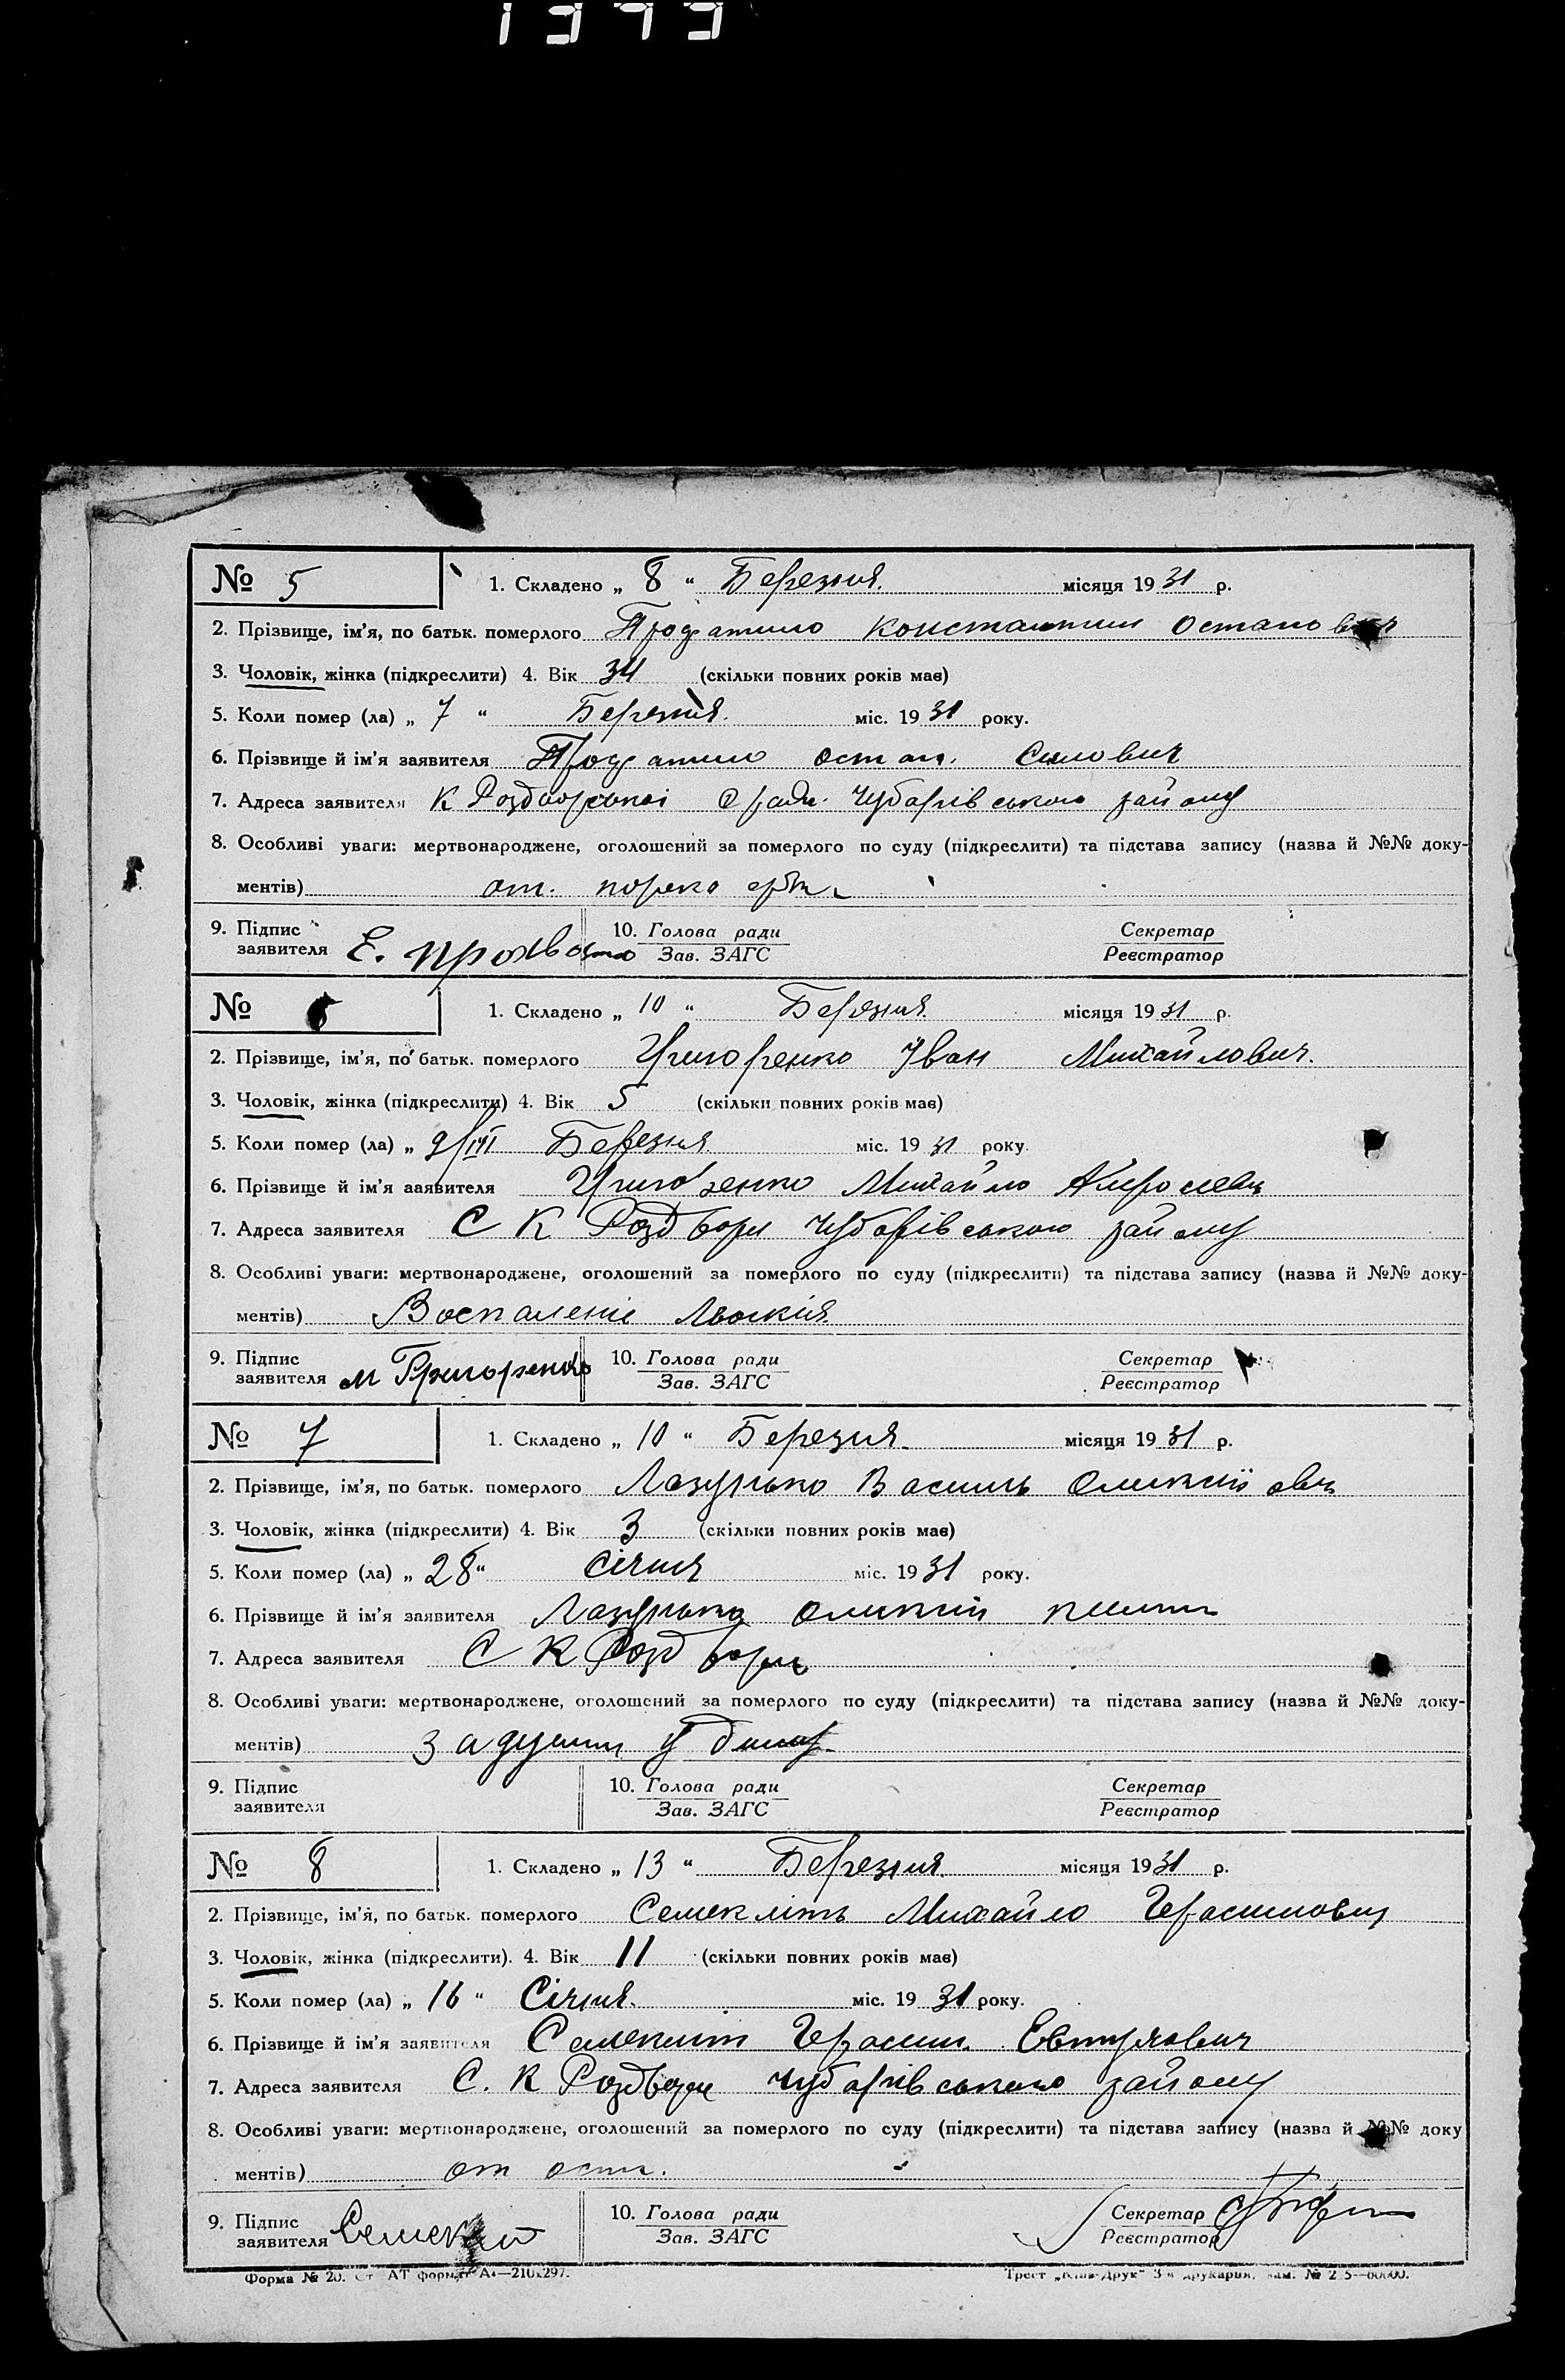 1373
№ 5 1. Складено „ 8 “ Березня. місяця 1931 р.
2. Прізвище, ім’я, по батьк. померлого Константин
3. Чоловік, жінка (підкреслити) 4. Вік 34 (скільки повних років має)
5. Коли помер (ла) „ 7 “ Березня. міс. 1931 року.
6. Прізвище й ім’я заявителя
7. Адреса заявителя К Чубарівського району
8. Особливі уваги: мертвонароджене, оголошений за померлого по суду (підкреслити) та підстава запису (назва й №№ доку-
ментів) от.
9. Підпис заявителя Е. 10. Голова ради Зав. ЗАГС Секретар Реєстратор
№ 1. Складено „ 10 “ Березня. місяця 1931 р.
2. Прізвище, ім’я, по батьк. померлого Григоренко Іван Михайлович.
3. Чоловік, жінка (підкреслити) 4. Вік 5 (скільки повних років має)
5. Коли помер (ла) „ 9/III Березня міс. 1931 року.
6. Прізвище й ім’я заявителя Михайло
7. Адреса заявителя С К Роздори Чубарівського району
8. Особливі уваги: мертвонароджене, оголошений за померлого по суду (підкреслити) та підстава запису (назва й №№ доку-
ментів) Воспаленіє
9. Підпис заявителя М Григоренко 10. Голова ради Зав. ЗАГС Секретар Реєстратор
№ 7 1. Складено „ 10 “ Березня. місяця 1931 р.
2. Прізвище, ім’я, по батьк. померлого Василь
3. Чоловік, жінка (підкреслити) 4. Вік 3 (скільки повних років має)
5. Коли помер (ла) „ 28 “ Січня міс. 1931 року.
6. Прізвище й ім’я заявителя
7. Адреса заявителя С К
8. Особливі уваги: мертвонароджене, оголошений за померлого по суду (підкреслити) та підстава запису (назва й №№ доку-
ментів)
9. Підпис заявителя 10. Голова ради Зав. ЗАГС Секретар Реєстратор
№ 8 1. Складено „ 13 “ Березня. місяця 1931 р.
2. Прізвище, ім’я, по батьк. померлого Михайло Герасимович
3. Чоловік, жінка (підкреслити). 4. Вік 11 (скільки повних років має)
5. Коли помер (ла) „ 16 “ Січня. міс. 1931 року.
6. Прізвище й ім’я заявителя Герасим
7. Адреса заявителя С. К Роздори Чубарівського району
8. Особливі уваги: мертвонароджене, оголошений за померлого по суду (підкреслити) та підстава запису (назва й №№ доку
ментів) от
9. Підпис заявителя 10. Голова ради Зав. ЗАГС Секретар Реєстратор
Форма № 20. формат А₄—210x297. Трест „Київ-Друк“